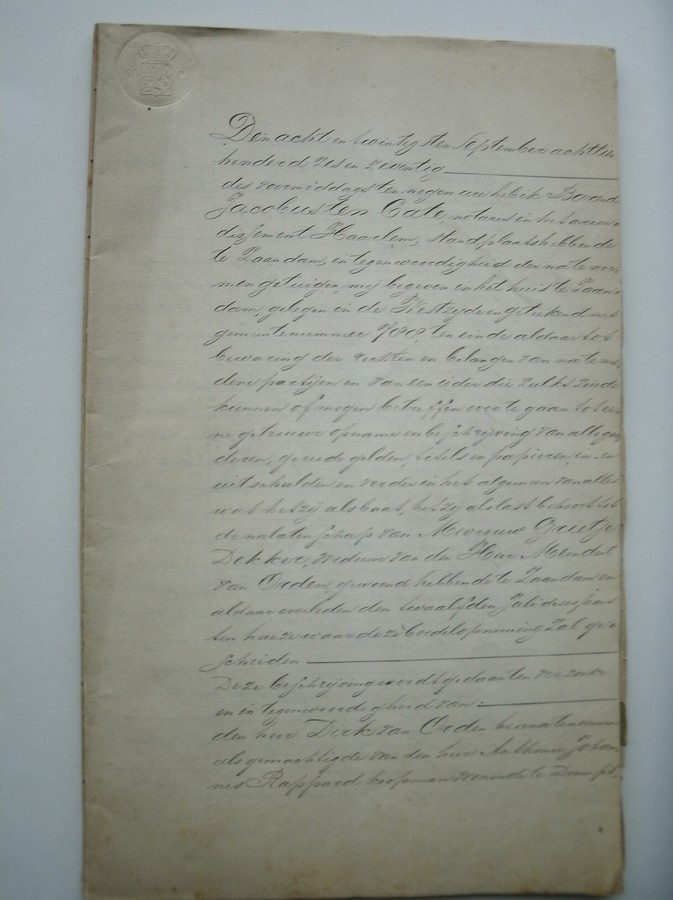 Den acht en twintigsten September achttien
honderd zes en zeventig
des voormiddags ten negen ure heb ik Barend
Jacobus ten Cate, notaris in het arron-
dissement Haarlem, standplaats hebbende
te Zaandam, in tegenwoordigheid der na te noe-
men getuigen, mij begeven in het huis te Zaan-
dam, gelegen in de Westzijde en getekend met
gemeentenummer ten einde aldaar tot
bewaring der rechten en belangen van na te mel-
dene partijen en van een ieder die zulks zoude
kunnen of mogen betreffen over te gaan tot ee-
ne getrouwe opname en beschrijving van alle goe-
deren, gereede gelden, titels en papieren, in- en
uitschulden en verder in het algemeen van alles
wat hetzij als baat, hetzij als last behoort tot
de nalatenschap van Mevrouw Grietje
Dekker, weduwe van den Heer Meindert
van Orden, gewoond hebbende te Zaandam en
aldaar overleden den twaalfden Juli dezes jaars
ten huize waar deze boedelopneming zal ge-
schieden
Deze beschrijving wordt gedaan ten verzoeke
en in tegenwoordigheid van:
den heer Dirk van Orden
als gemachtigde van den heer Anthonie Johan-
nes Rappard koopman wonende te